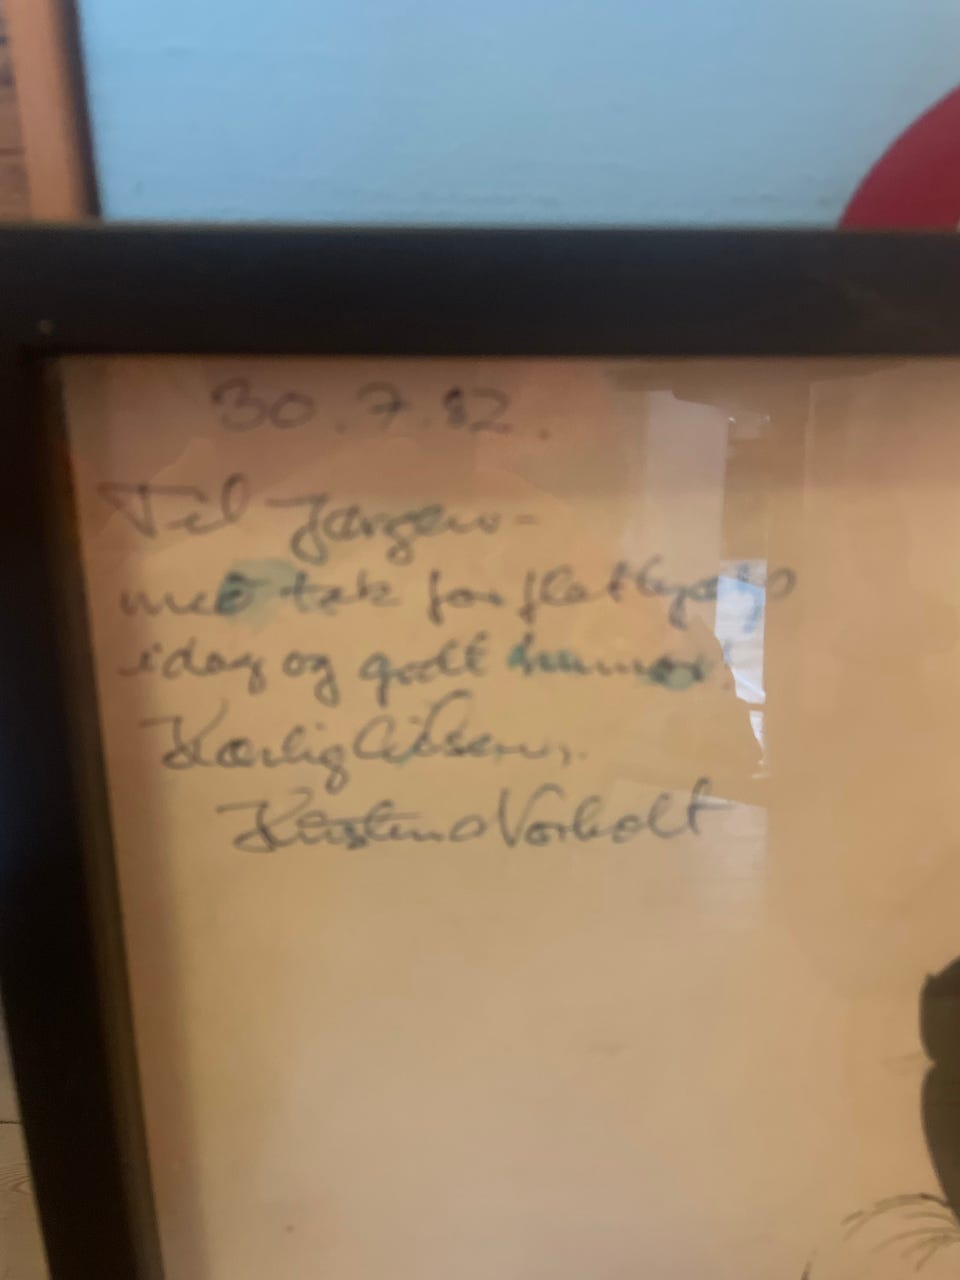 30.7.82.
Til Jørgen -
med tak for flethjælp
idag og godt humør!
Kærlig hilsen,
Kirsten Norholt